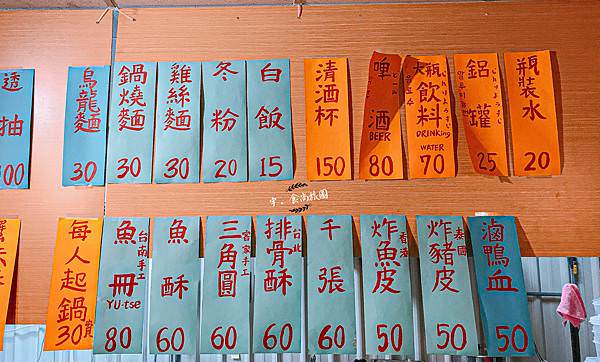 透抽
100
烏龍麵
30
鍋燒麵
30
雞絲麵
30
冬粉
20
白飯
15
清酒杯
150
啤酒
BEER
80
大瓶飲料
DRINKing
WATER
70
鋁罐
25
瓶裝水
20
宇。食尚旅圖
每人起鍋
30寶
魚冊
台南手工
YU-tse
80
魚酥
60
三角圓
客家手工
60
排骨酥
台北
60
千張
60
炸魚皮
香港
50
炸豬皮
泰國
50
滷鴨血
50